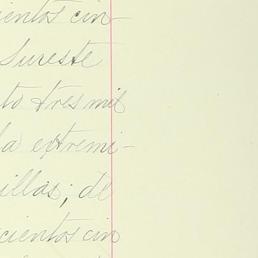 ientos cin-
Sureste
to tres mil
la extremi-
illas; de
cientos cin